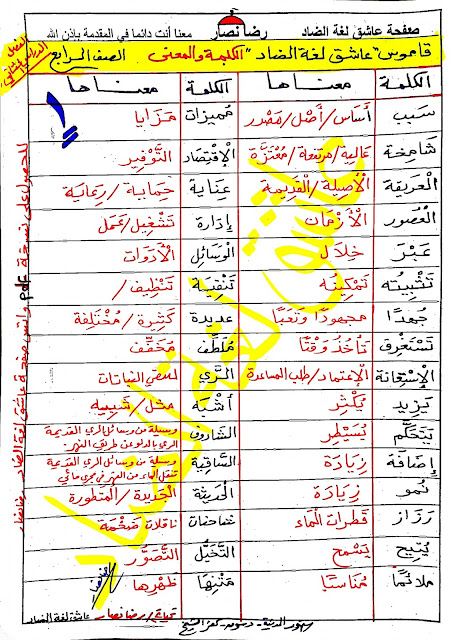 صفحة عاشق لغة الضاد رضا نصار معنا أنت دائما في المقدمة بإذن الله
قاموس "عاشق لغة الضاد" "الكلمة والمعنى" الصف الرابع
الفصل الدراسي الثاني
الكلمة معناها الكلمة معناها
سَبَب أساس/أصْل/مَصْدر مُميزات مَزَايا
شَامِخة عَالية/مرتفعة/مُعْتَزَّة الإقْتِصَاد التَّوْفِير
الْعَرِيقة الأَصِيلة/القَدِيمة عِنَاية حِمَاية/رِعَاية
الْعُصُور الأَزْمَان إِدَارة تَشْغِيل/عَمَل
عَبْرَ خِلَال الْوَسَائِل الأَدَوَات
تَثْبِيتُه تَمْكِينُه تَنْقِيَة تَنْظِيف/
جُهْدًا مجهودًا وَتَعَبًا عَدِيدة كَثِيرة/مُخْتَلِفة
تَسْتَغْرِق تَأخُذ وَقْتًا مُلَطِّف مُخَفِّف
الإسْتِعَانة الإعْتِماد/طلب المساعدة الرَّي لسقي النباتات
يَزِيد يَكْثُر أَشْبَه مثل/شَبِيه
يَتَحَكَّم يُسَيْطِر الشَّادُوف وسيلة من وسائل الري القديمة
الري بالدلو عن طريق النهر
إضَافَة زِيَادَة السَّاقِية وسيلة من وسائل الري القديمة
تنقل الماء من النهر في مجرى مائي
نُمو زِيَادَة الحَدِيثَة الْجَدِيدة/المتطورة
رَذَاذ قَطَرات الْمَاء شَاحنات نَاقلات ضَخْمَة
يُتِيح يَسْمَح التَّخَيُّل التَّصَوُّر
مُلَائمًا مُنَاسبًا مَتْنِهَا ظَهْرِها
تحياتي/رضا نصار عاشق لغة الضاد
للحصول على نسخة pdf واتس صفحة عاشق لغة الضاد رضا نصار
عاشق لغة الضاد